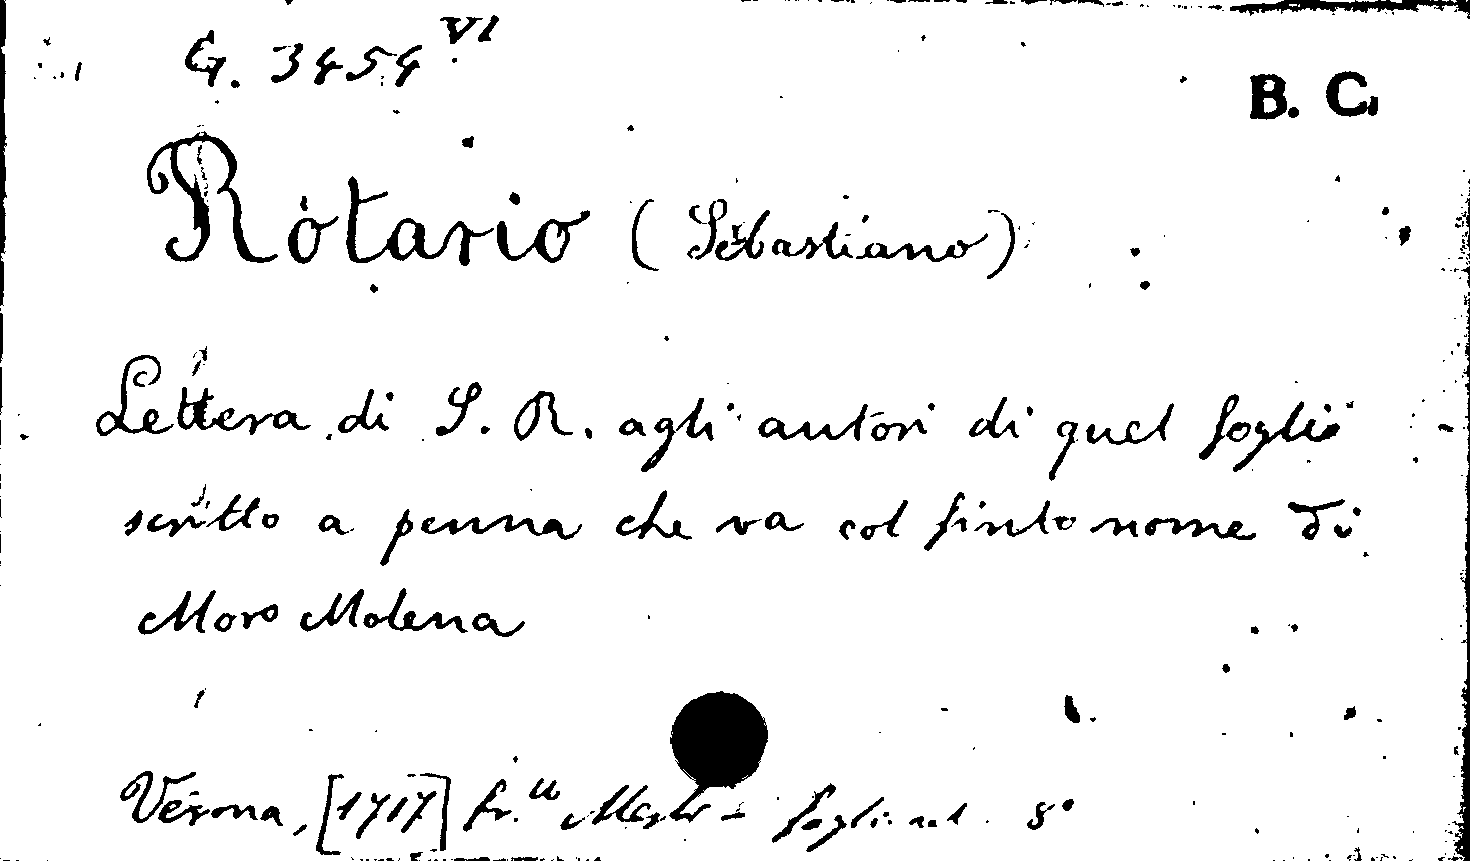 G. 3454 VI
B. C.
Rotario (Sebastiano)
Lettera di S. R. agli autori di quel foglio
scritto a penna che va col finto nome di
Moro Molena
Verona, [1717] fr.lli 8°